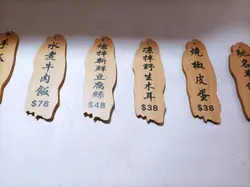 水煮牛肉飯
$78
椒拌新鮮豆腐絲
$48
涼拌野生木耳
$38
燒椒皮蛋
$38